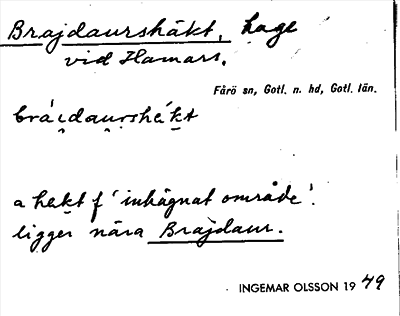 Brajdaurshäkt, hage
vid Hamars.
Fårö sn, Gotl. n. hd, Gotl. län.
brái̯dau̯rshék̠t
a hekt f 'inhägnat område'.
ligger nära Brajdaur.
INGEMAR OLSSON 1949